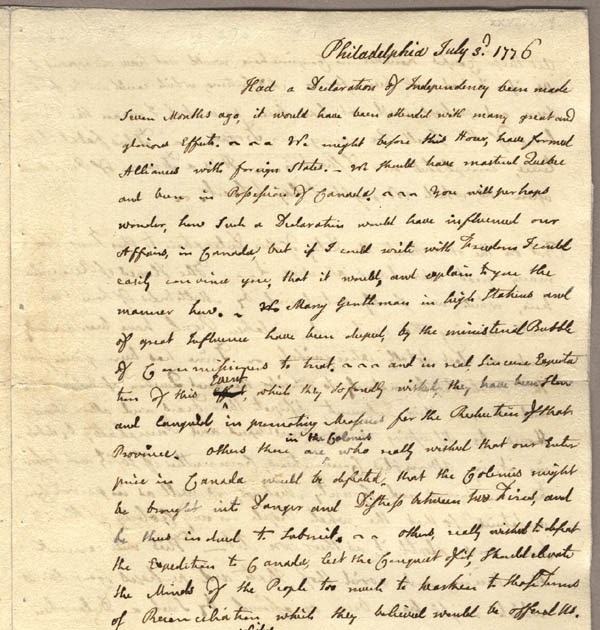 Philadelphia July 3.d 1776
Had a Declaration of Independency been made
seven Months ago, it would have been attended with many great and
glorious Effects. ~ ~ ~ We might before this Hour, have formed
Alliances with foreign States. — We should have mastered Quebec
and been in Possession of Canada. ~ ~ ~ You will perhaps
wonder, how such a Declaration would have influenced our
Affairs, in Canada, but if I could write with Freedom I could
easily convince you, that it would, and explain to you the
manner how. ~ Many Gentlemen in high Stations and
of great Influence have been duped, by the ministerial Bubble
of Commissioners to treat. ~ ~ ~ and in real, sincere Expecta
tion of this Event, which they so fondly wished, they have been slow
and languid in promoting Measures for the Reduction of that
Province. Others there are in the Colonies who really wished that our Enter
prise in Canada would be defeated, that the Colonies might
be brought into Danger and Distress between two Fires, and
be thus induced to submit. ~ ~ others, really wished to defeat
the Expedition to Canada, lest the Conquest of it, should elevate
the Minds of the People too much to hearken to those Terms
of Reconciliation which they believed would be offered Us.